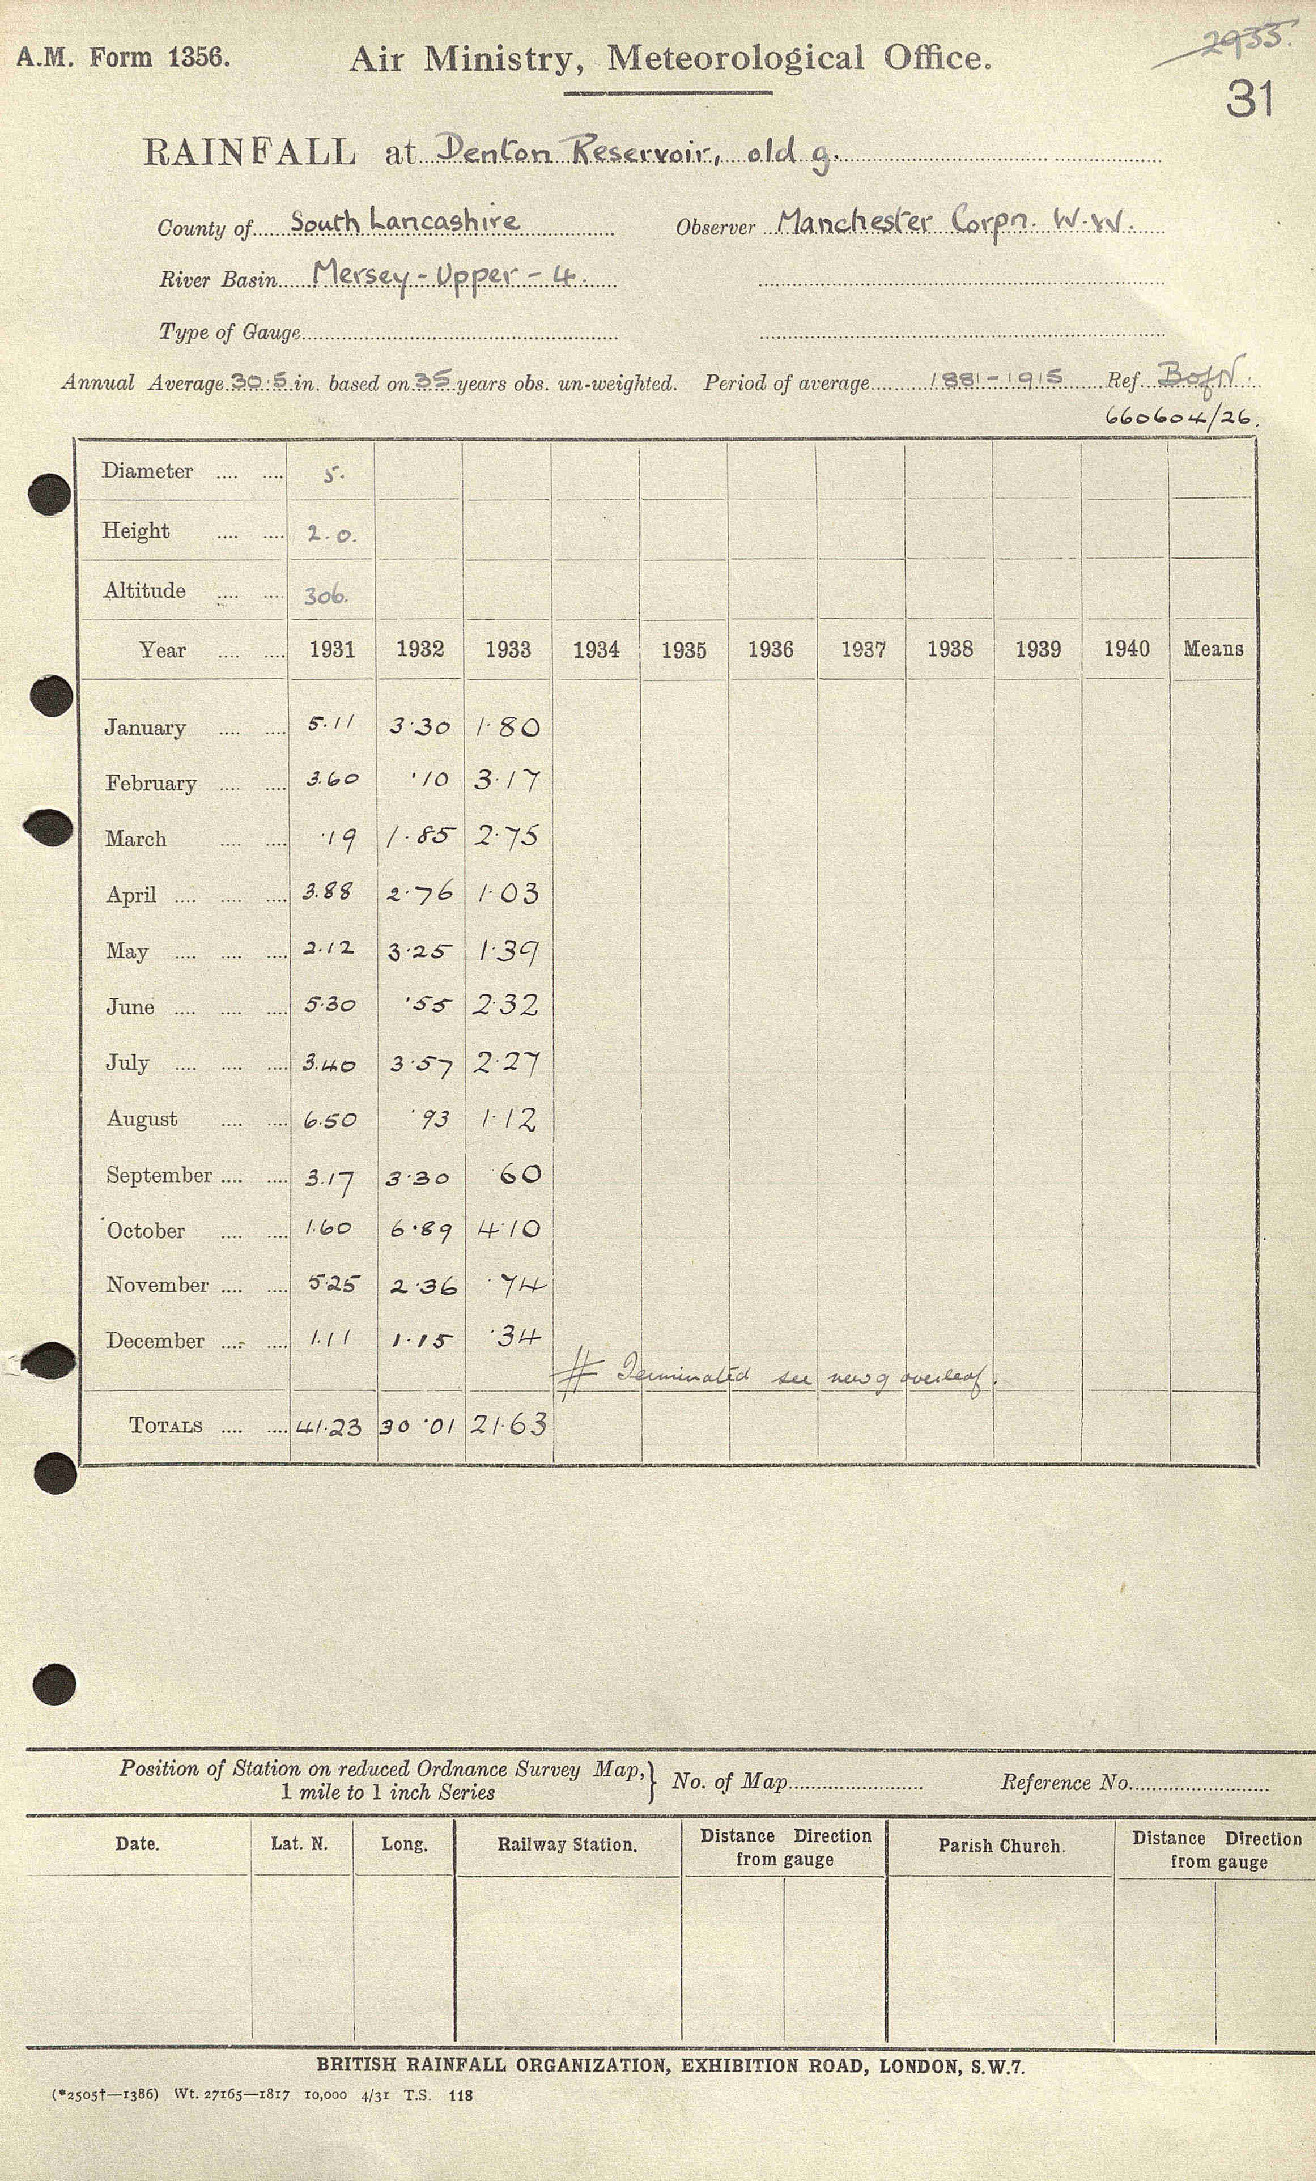 2933.
A.M. Form 1356. Air Ministry, Meteorological Office.
31
RAINFALL at Denton Reservoir, old g.
County of South Lancashire Observer Manchester Corpn. W.W.
River Basin Mersey - Upper - 4.
Type of Gauge
Annual Average 30.5 in. based on 35 years obs. un-weighted. Period of average 1881-1915 Ref. B of N.
660604/26.
Diameter .... .... 5.
Height .... .... 2.0.
Altitude .... .... 306.
Year .... .... 1931 1932 1933 1934 1935 1936 1937 1938 1939 1940 Means
January .... .... 5.11 3.30 1.80
February .... .... 3.60 .10 3.17
March .... .... .19 1.85 2.75
April .... .... .... 3.88 2.76 1.03
May .... .... .... 2.12 3.25 1.39
June .... .... .... 5.30 .55 2.32
July .... .... .... 3.40 3.57 2.27
August .... .... 6.50 .93 1.12
September .... .... 3.17 3.30 .60
October .... .... 1.60 6.89 4.10
November .... .... 5.25 2.36 .74
December .... .... 1.11 1.15 .34
# Terminated see new g overleaf.
TOTALS .... .... 41.23 30.01 21.63
Position of Station on reduced Ordnance Survey Map,} No. of Map Reference No.
1 mile to 1 inch Series
Date. Lat. N. Long. Railway Station. Distance Direction from gauge Parish Church. Distance Direction from gauge
BRITISH RAINFALL ORGANIZATION, EXHIBITION ROAD, LONDON, S.W.7.
(*2505†—1386) Wt. 27165—1817 10,000 4/31 T.S. 118